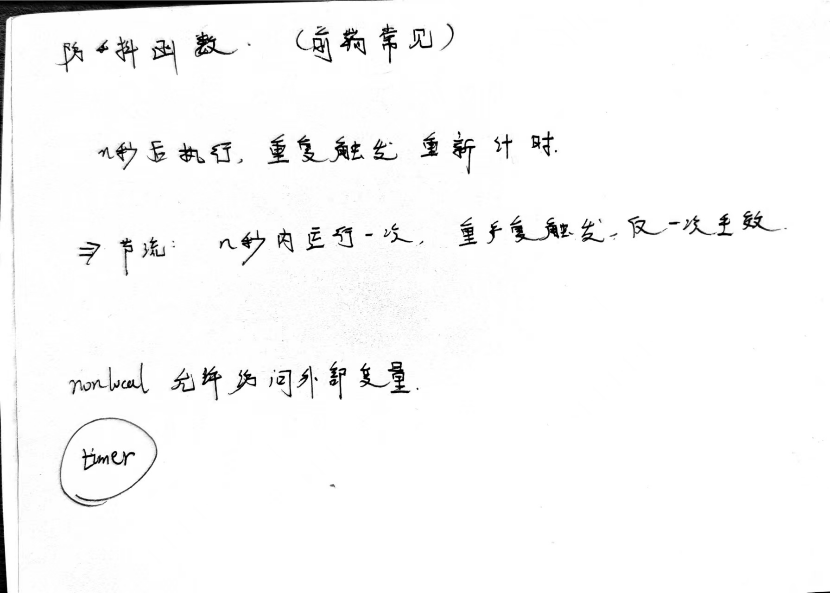 防抖函数.（前端常见）
n秒后执行，重复触发 重新计时.
⇒ 节流： n秒内运行一次， 重复触发，仅一次生效.
nonlocal 允许访问外部变量.
timer